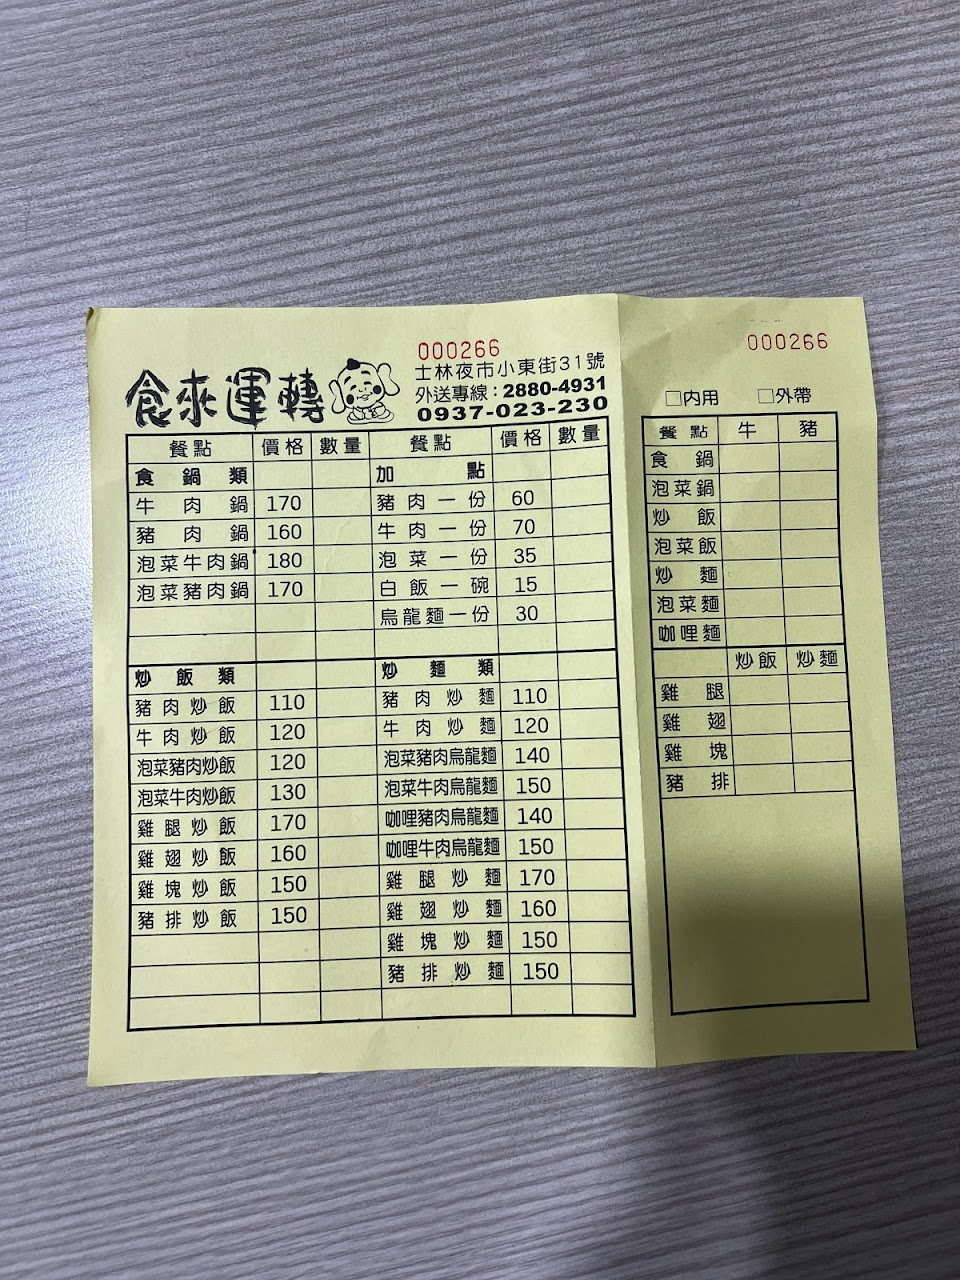 000266
食來運轉
士林夜市小東街31號
外送專線：2880-4931
0937-023-230
餐點 價格 數量 餐點 價格 數量
食鍋類 加點
牛肉鍋 170 豬肉一份 60
豬肉鍋 160 牛肉一份 70
泡菜牛肉鍋 180 泡菜一份 35
泡菜豬肉鍋 170 白飯一碗 15
烏龍麵一份 30
炒飯類 炒麵類
豬肉炒飯 110 豬肉炒麵 110
牛肉炒飯 120 牛肉炒麵 120
泡菜豬肉炒飯 120 泡菜豬肉烏龍麵 140
泡菜牛肉炒飯 130 泡菜牛肉烏龍麵 150
雞腿炒飯 170 咖哩豬肉烏龍麵 140
雞翅炒飯 160 咖哩牛肉烏龍麵 150
雞塊炒飯 150 雞腿炒麵 170
豬排炒飯 150 雞翅炒麵 160
雞塊炒麵 150
豬排炒麵 150
000266
□內用 □外帶
餐點 牛 豬
食鍋
泡菜鍋
炒飯
泡菜飯
炒麵
泡菜麵
咖哩麵
炒飯 炒麵
雞腿
雞翅
雞塊
豬排